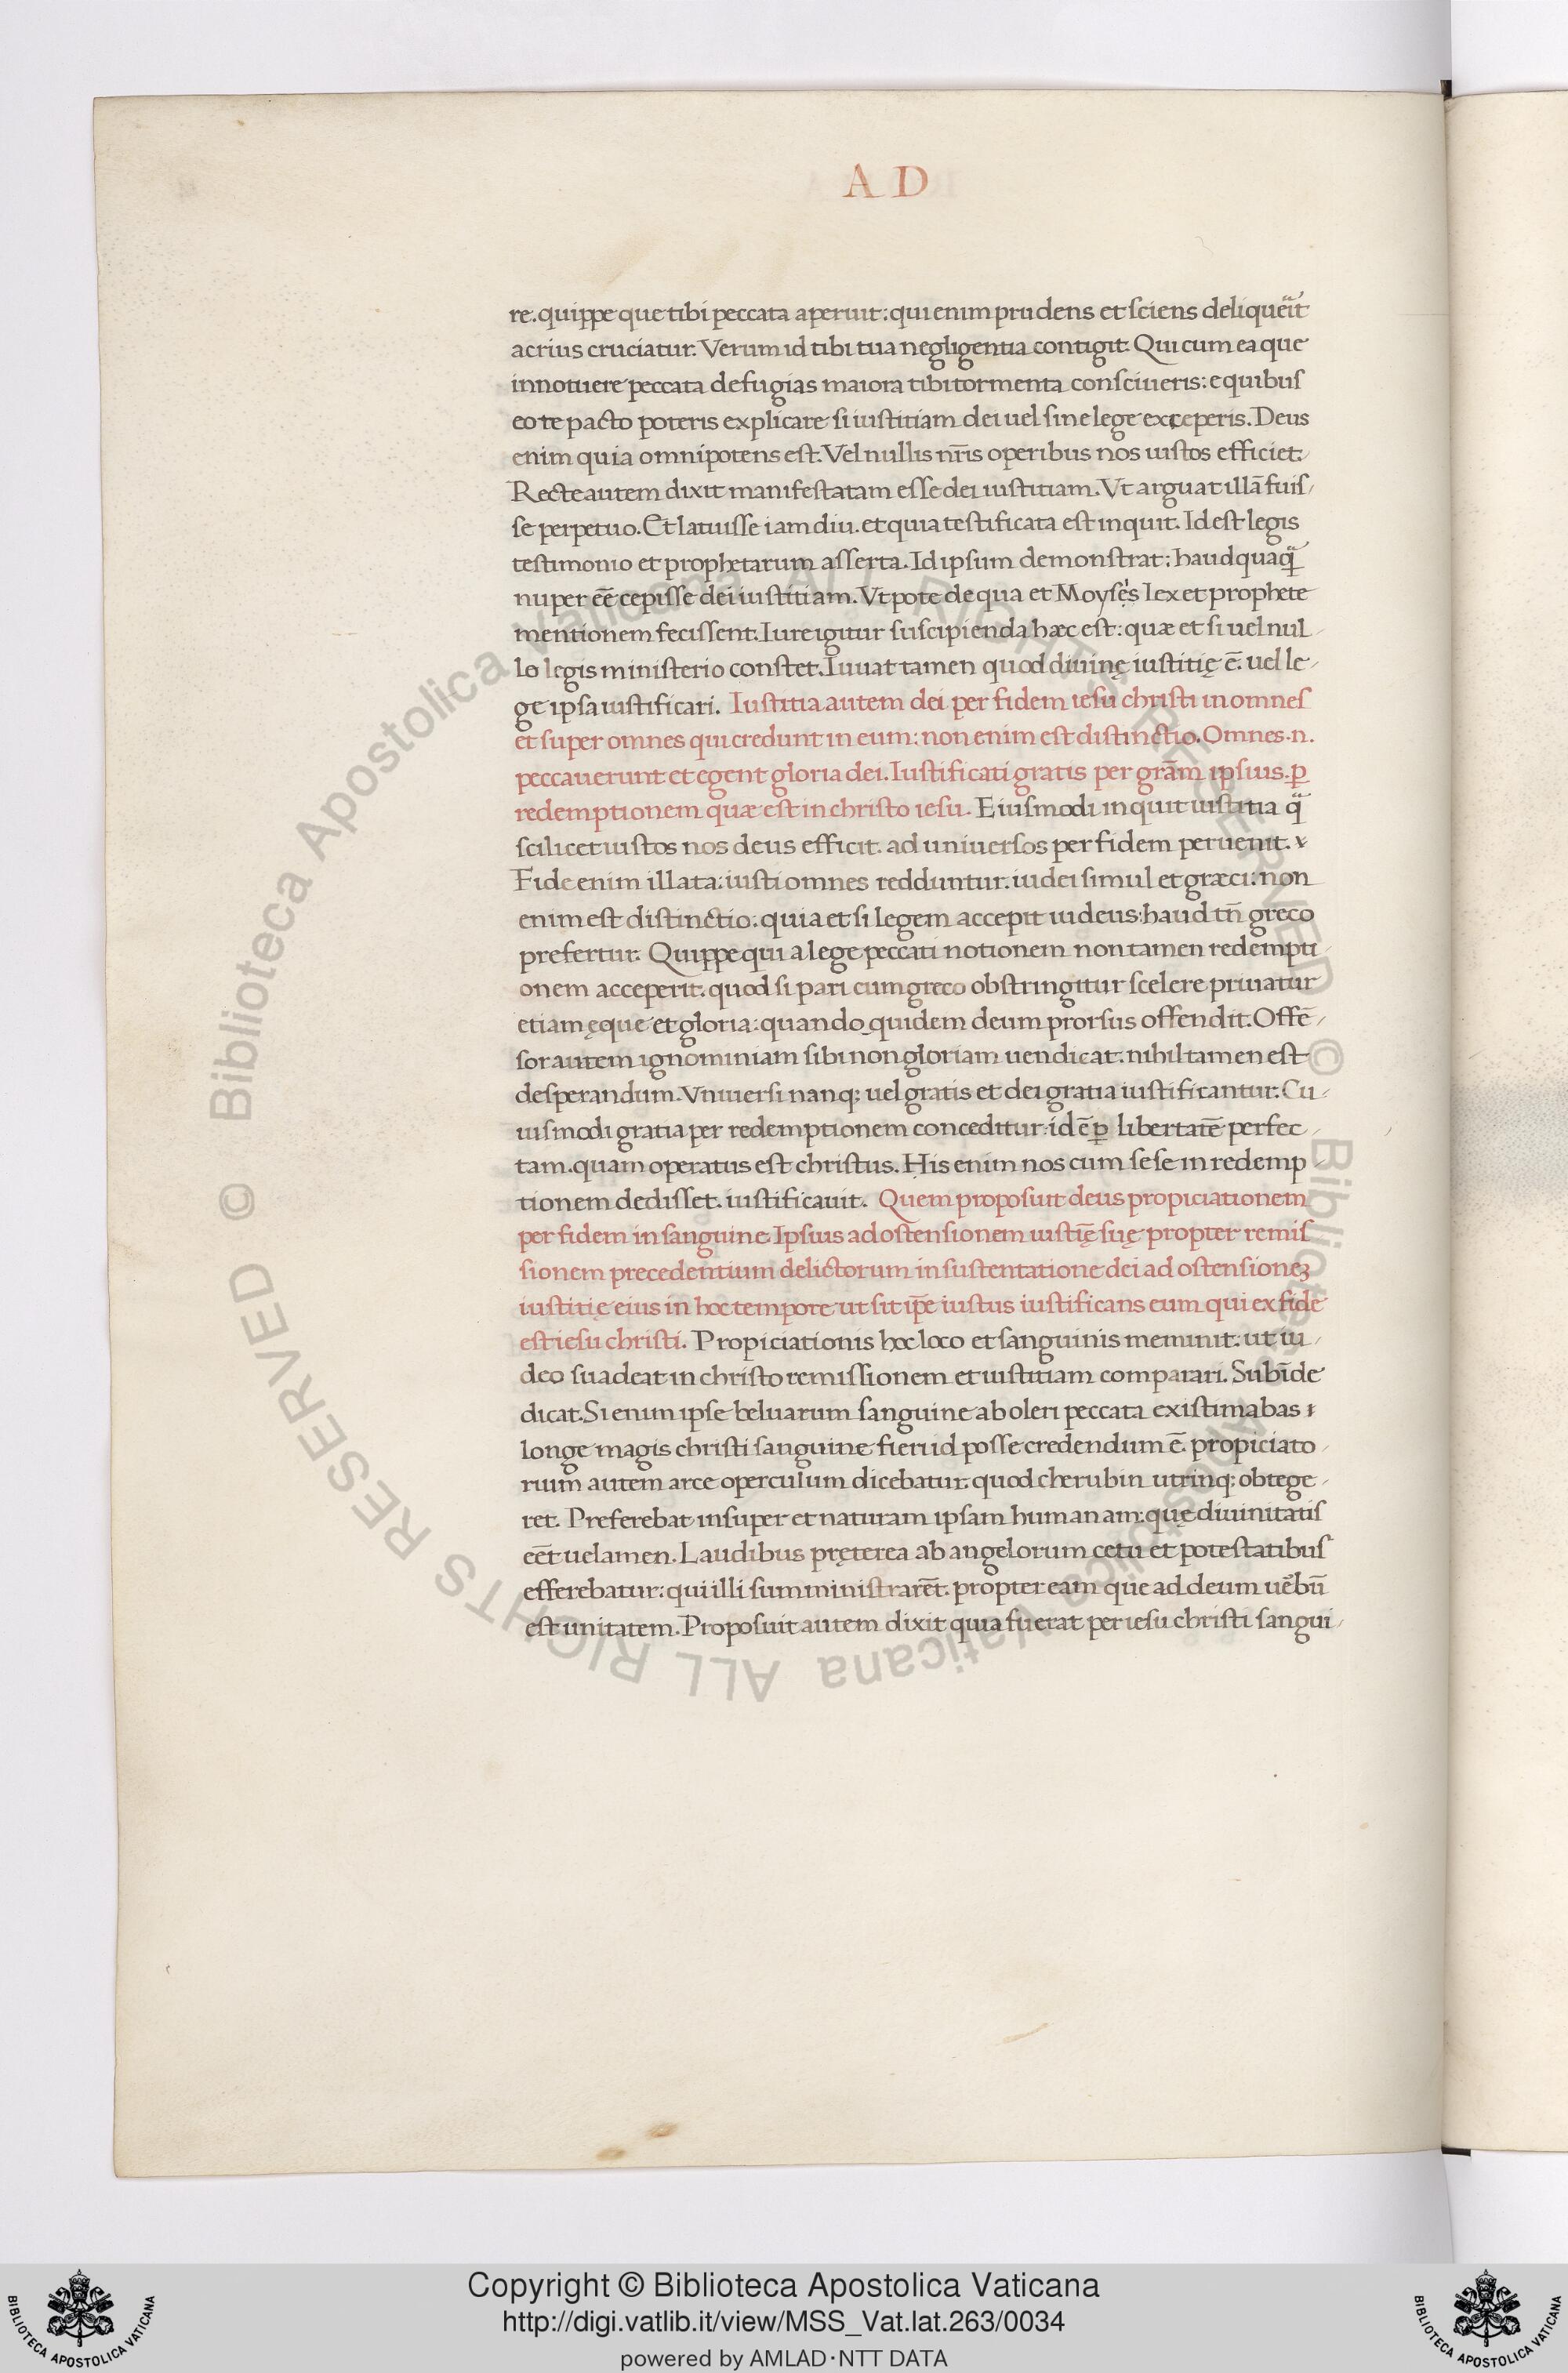 A D
re. quippe que tibi peccata aperuit: qui enim prudens et sciens deliqueͣit
acrius cruciatur. Verum id tibi tua negligentia contigit. Qui cum ea que
innotuere peccata defugias maiora tibi tormenta consciueris: e quibus
eo te pacto poteris explicare si iustitiam dei uel sine lege exceperis. Deus
enim quia omnipotens est. Vel nullis nr̄is operibus nos iustos efficiet.
Recte autem dixit manifestatam esse dei iustitiam. Vt arguat illā fuis/
se perpetuo. Et latuisse iam diu. et quia testificata est inquit. Id est legis
testimonio et prophetarum asserta. Id ipsum demonstrat: haudquaqͣ̃
nuper eē cepisse dei iustitiam. Vt pote de qua et Moyses lex et prophete
mentionem fecissent. Iure igitur suscipienda hæc est: quæ et si uel nul/
lo legis ministerio constet. Iuuat tamen quod diuinę iustitię ē. uel le/
ge ipsa iustificari. Iustitia autem dei per fidem iesu christi in omnes
et super omnes qui credunt in eum: non enim est distinctio. Omnes .n.
peccauerunt et egent gloria dei. Iustificati gratis per grām ipsius. ꝑ
redemptionem quæ est in christo iesu. Eiusmodi inquit iustitia qͣ
scilicet iustos nos deus efficit. ad uniuersos per fidem peruenit.
Fide enim illata: iusti omnes redduntur. iudei simul et græci: non
enim est distinctio: quia et si legem accepit iudeus: haud tn̄ greco
prefertur. Quippe qui a lege peccati notionem non tamen redempti/
onem acceperit. quod si pari cum greco obstringitur scelere priuatur
etiam ęque et gloria: quando quidem deum prorsus offendit. Offē/
sor autem ignominiam sibi non gloriam uendicat. nihil tamen est
desperandum. Vniuersi nanq; uel gratis et dei gratia iustificantur. Cu/
iusmodi gratia per redemptionem conceditur: id ē ꝑ libertatē perfec/
tam. quam operatus est christus. His enim nos cum sese in redemp/
tionem dedisset. iustificauit. Quem proposuit deus propiciationem
per fidem in sanguine Ipsius ad ostensionem iustię̄ suę propter remis
sionem precedentium delictorum in sustentatione dei ad ostensioneꝫ
iustitię eius in hoc tempore ut sit ip̄e iustus iustificans eum qui ex fide
est iesu christi. Propiciationis hoc loco et sanguinis meminit: ut iu/
deo suadeat in christo remissionem et iustitiam comparari. Subīde
dicat. Si enim ipse beluarum sanguine aboleri peccata existimabas
longe magis christi sanguine fieri id posse credendum ē. propiciato/
rium autem arce operculum dicebatur. quod cherubin utrinq; obtege/
ret. Preferebat insuper et naturam ipsam humanam: quę diuinitatis
eēt uelamen. Laudibus pręterea ab angelorum cetu et potestatibus
efferebatur: qui illi sumministrarēt. propter eam que ad deum ue͛bū
est unitatem. Proposuit autem dixit quia fuerat per iesu christi sangui/
© Biblioteca Apostolica Vaticana ALL RIGHTS RESERVED
© Biblioteca Apostolica Vaticana ALL RIGHTS RESERVED
Copyright © Biblioteca Apostolica Vaticana
http://digi.vatlib.it/view/MSS_Vat.lat.263/0034
powered by AMLAD·NTT DATA
BIBLIOTECA APOSTOLICA VATICANA
BIBLIOTECA APOSTOLICA VATICANA